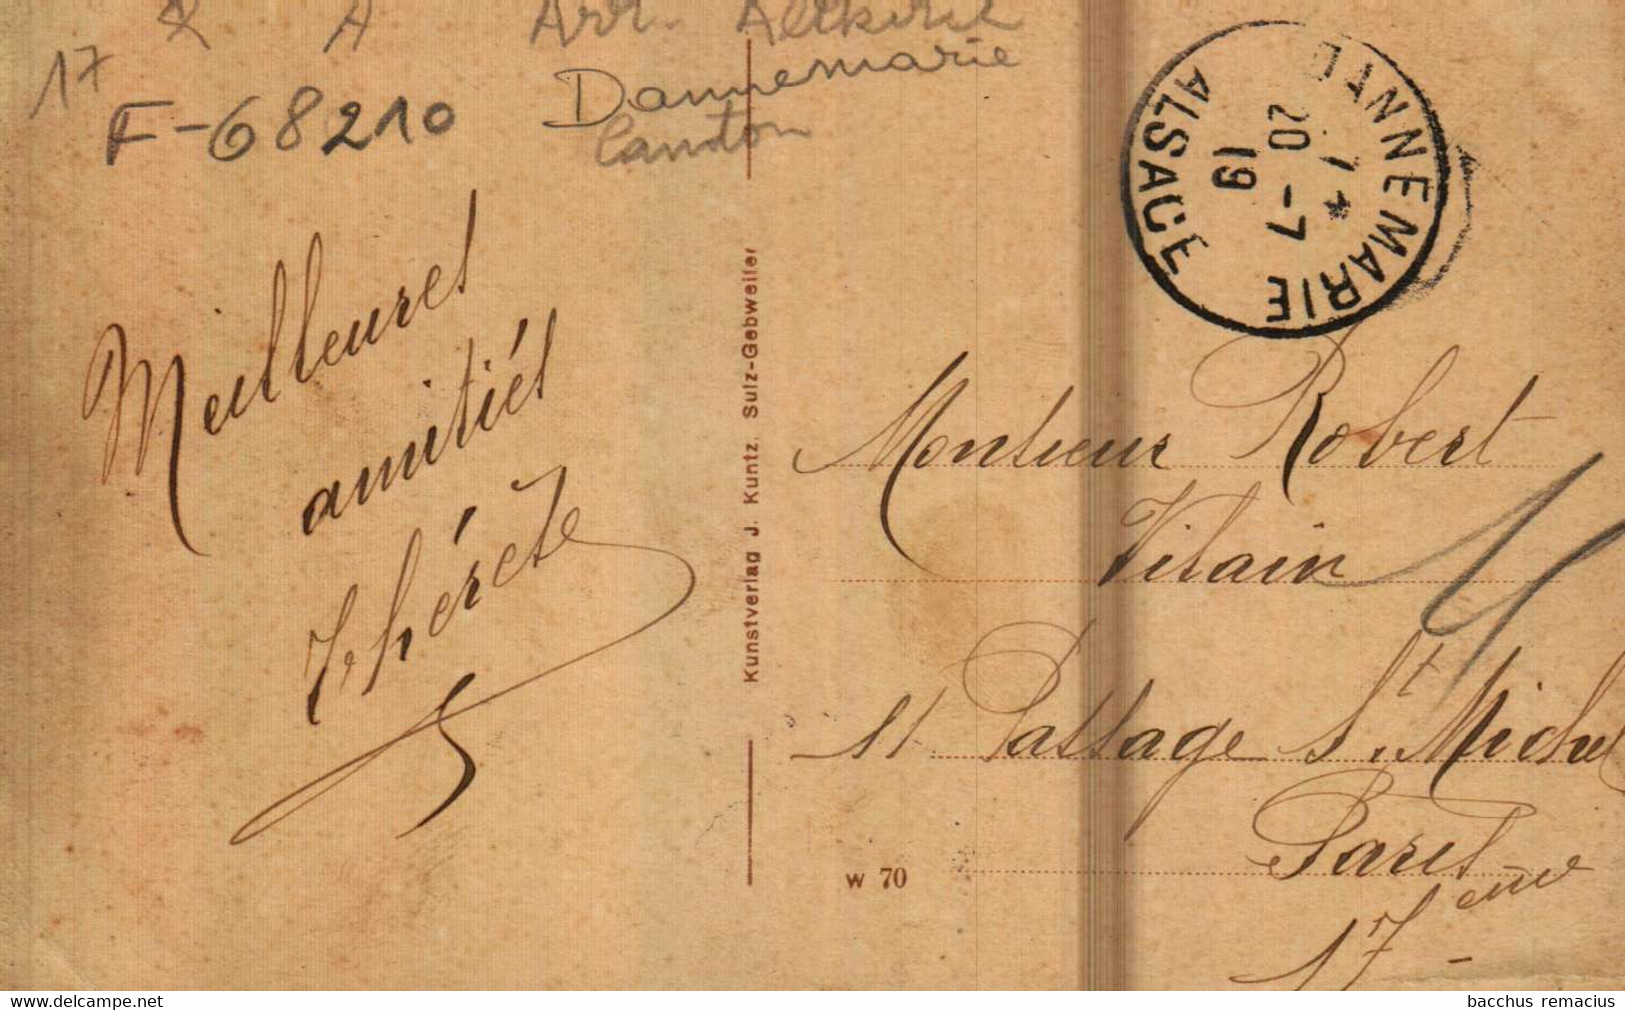 Arr. Altkirch
17
F-68210
Dannemarie
Canton
DANNEMARIE
ALSACE
20 -7
19
Meilleures
amitiés
Thérèse
Kunstverlag J. Kuntz, Sulz-Gebweiler
Monsieur Robert
Vilain
11 Passage St. Michel
Paris
17eme
W 70
www.delcampe.net
bacchus remacius